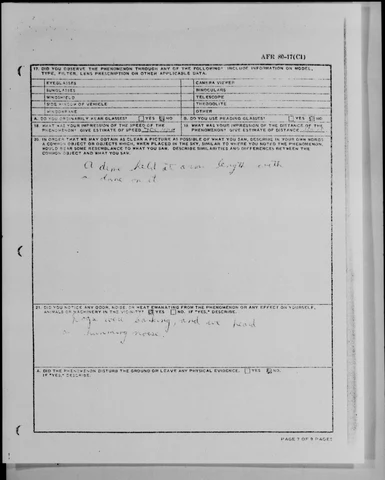 AFR 80-17(C1)
17. DID YOU OBSERVE THE PHENOMENON THROUGH ANY OF THE FOLLOWING? INCLUDE INFORMATION ON MODEL, TYPE, FILTER, LENS PRESCRIPTION OR OTHER APPLICABLE DATA.
EYEGLASSES CAMERA VIEWER
SUNGLASSES BINOCULARS
WINDSHIELD TELESCOPE
SIDE WINDOW OF VEHICLE THEODOLITE
WINDOWPANE OTHER
A. DO YOU ORDINARILY WEAR GLASSES? YES NO B. DO YOU USE READING GLASSES? YES NO
18. WHAT WAS YOUR IMPRESSION OF THE SPEED OF THE PHENOMENON? GIVE ESTIMATE OF SPEED
19. WHAT WAS YOUR IMPRESSION OF THE DISTANCE OF THE PHENOMENON? GIVE ESTIMATE OF DISTANCE
20. IN ORDER THAT WE MAY OBTAIN AS CLEAR A PICTURE AS POSSIBLE OF WHAT YOU SAW, DESCRIBE IN YOUR OWN WORDS
A COMMON OBJECT OR OBJECTS WHICH, WHEN PLACED IN THE SKY, SIMILAR TO WHERE YOU NOTED THE PHENOMENON,
WOULD BEAR SOME RESEMBLANCE TO WHAT YOU SAW. DESCRIBE SIMILARITIES AND DIFFERENCES BETWEEN THE
COMMON OBJECT AND WHAT YOU SAW.
A dime held at arm length with
a dome on it
21. DID YOU NOTICE ANY ODOR, NOISE, OR HEAT EMANATING FROM THE PHENOMENON OR ANY EFFECT ON YOURSELF,
ANIMALS OR MACHINERY IN THE VICINITY? YES NO. IF "YES," DESCRIBE.
Dogs were barking, and we heard
a humming noise.
A. DID THE PHENOMENON DISTURB THE GROUND OR LEAVE ANY PHYSICAL EVIDENCE. YES NO.
IF "YES," DESCRIBE.
PAGE 7 OF 9 PAGES